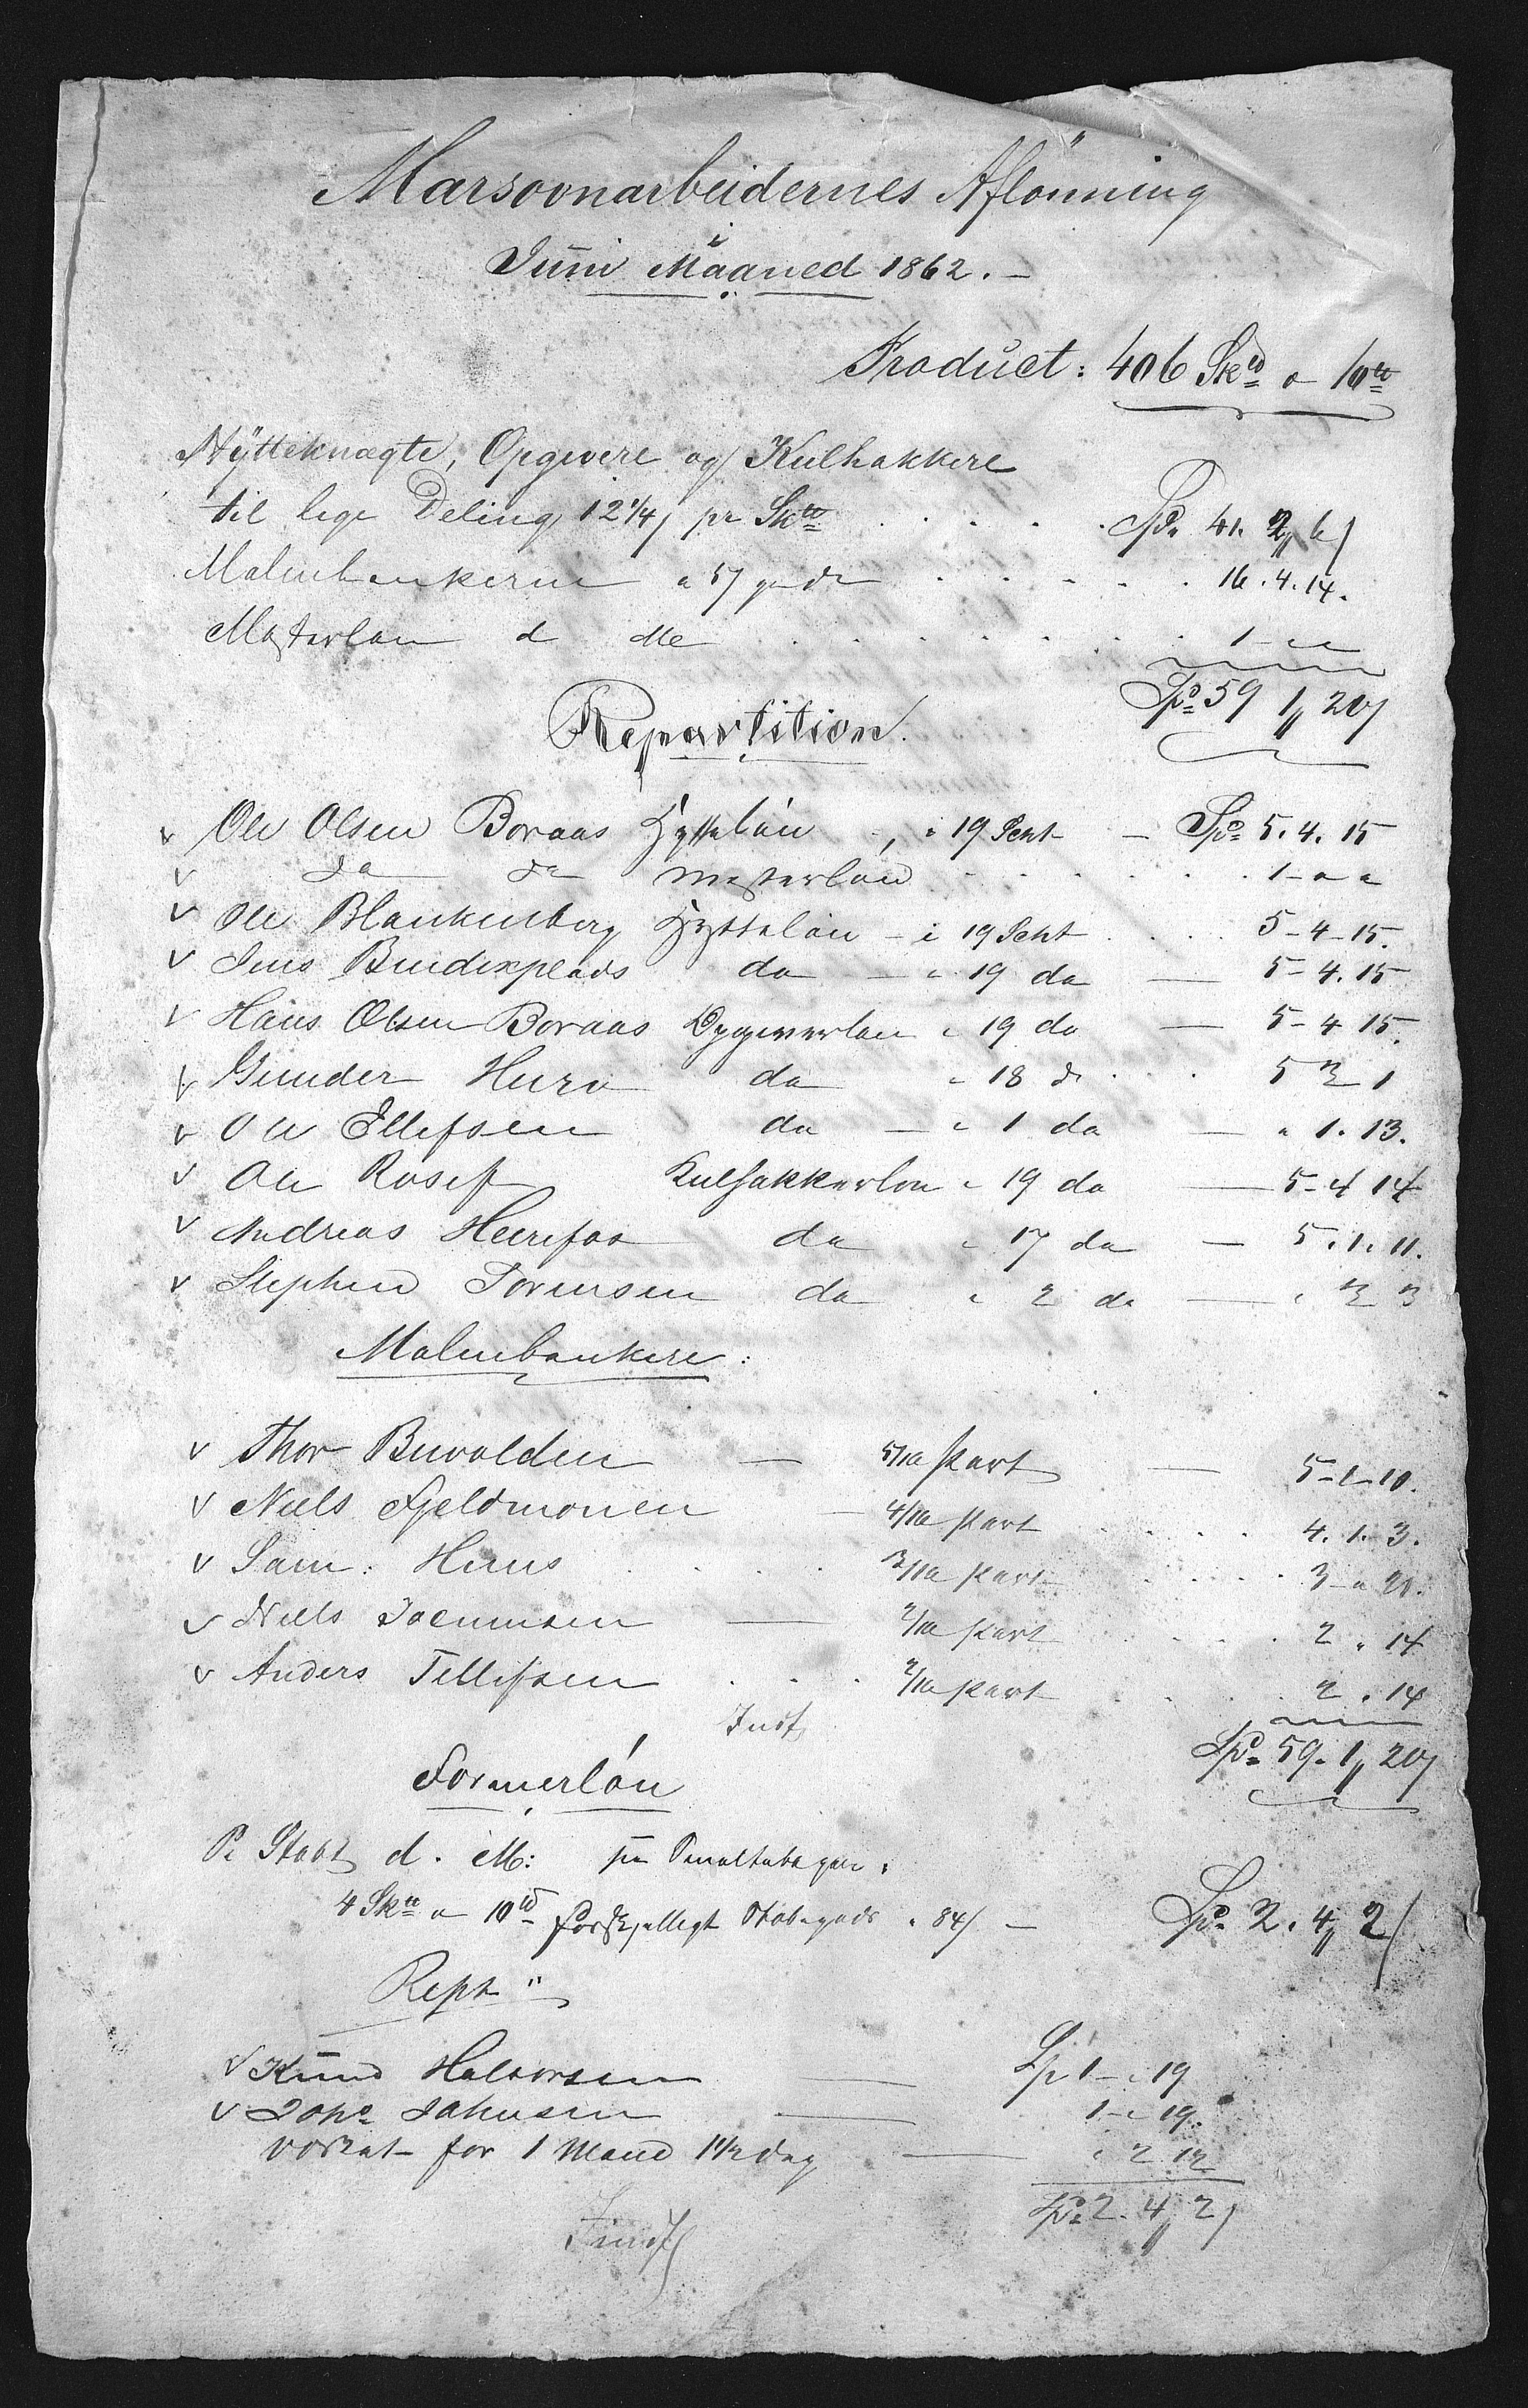 Marsovnarbeidernes Aflønning
Juni Maaned 1862. –
Product: 406 Skd a 10td
Hytteknægte, Opgivere og Kulhakkere
til lige Deling 12 1/4 s pr Skd . . . . . Spd 41. 2 " 6 s
Malmbankerne a 5 s pr do . . . . . 16. 4. 14.
Masterløn d Me . . . . . 1 - " "
Spd 59 1 " 20 s
Repartition.
v Ole Olsen Boraas Hytteløn " i 19 Skt — Spd 5. 4. 15
v do do Mesterløn . . . . . 1 - " "
v Ole Blankenberg Hytteløn - i 19 Skt . . . 5 - 4 - 15.
v Jens Bendixplads do — " 19 do — 5 - 4. 15
v Hans Olsen Boraas Opgiverløn " 19 do — 5 - 4 15.
v Gunder Huro do " 18 do . . . 5 3 1
v Ole Ellefsen do — " 1 do — " 1. 13.
v Ole Rosef Kulhakkerløn " 19 do — 5 - 4 14
v Andreas do " 17 do — 5. 1. 11.
v Stephen Sørensen do " 2 do — " 3 3
Malmbankere:
v Thor Buvolden — 5/16 Part — 5 - 1 - 10.
v Niels Fjeldmonen — 4/16 Part . . . . 4. 1. 3.
v Sam. Huus . . . . 3/16 Part . . . . 3 - " 20.
v Niels — 2/16 Part . . . . 2 " 14
v Anders Tellifsen . . . 2/16 Part . . . . 2 " 14
Spd 59. 1 " 20 s
Formerløn
Pr Stobt d. M:
4 Skd a 10td forskjelligt Stobegods a 84 s — Spd 2. 4 " 2 s
Rept "
v Knud Halvorsen — Sp 1 - " 19
v Johs Johnsen — 1 - " 19.
for 1 Mand 1 1/2 dag — " 2 12
Spd 2. 4 " 2 s